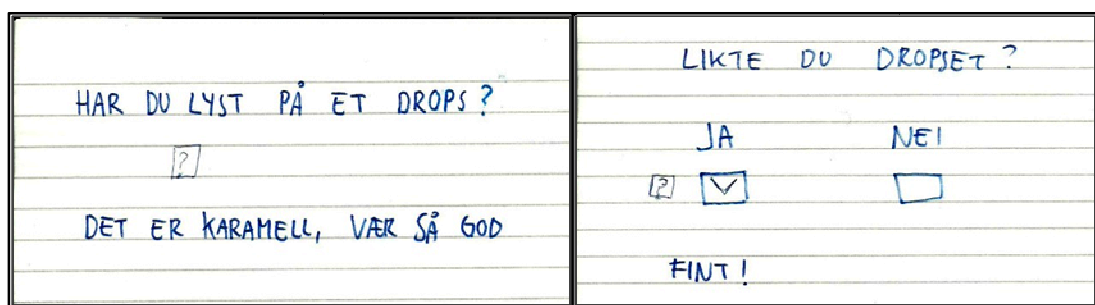 HAR DU LYST PÅ ET DROPS?
?
DET ER KARAMELL, VÆR SÅ GOD
LIKTE DU DROPSET?
JA NEI
?
FINT!